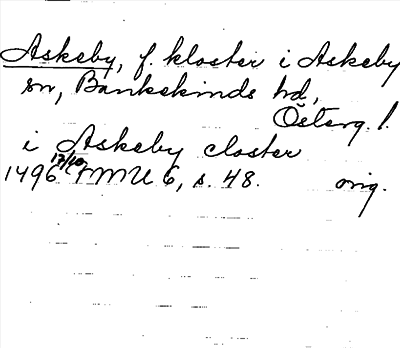 Askeby, f. kloster i Askeby
sn, Bankekinds hd,
Österg. l.
i Askeby closter
1496 17/10 FMU 6, s. 48. orig.